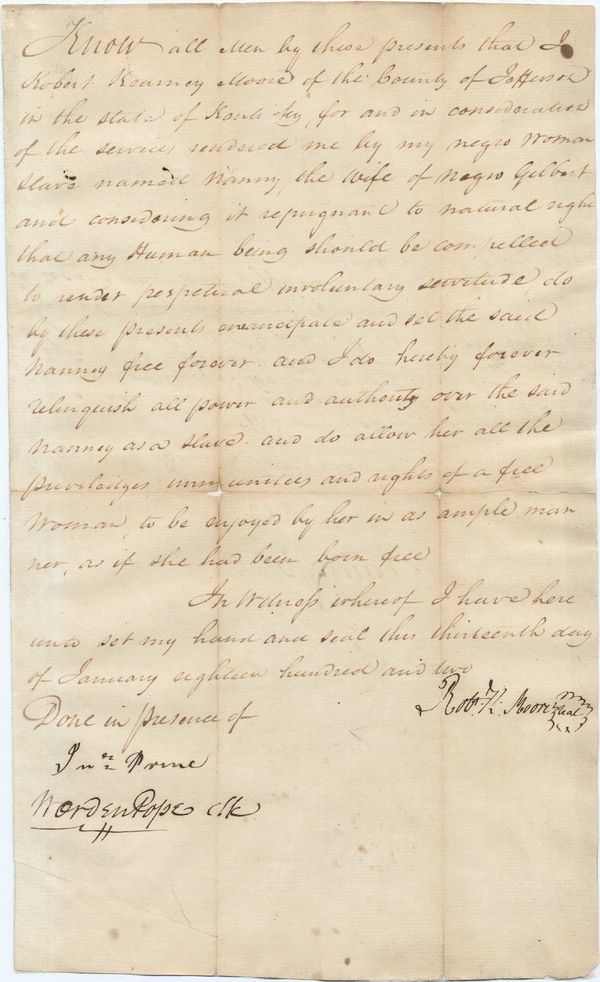 Know all Men by these presents that I
Robert Kearney Moore of the County of Jefferson
in the state of Kentucky, for and in consideration
of the services rendered me by my negro Woman
slave named Nanny, the Wife of Negro Gilbert
and considering it repugnant to natural right
that any Human being should be compelled
to render perpetual involuntary servitude do
by these presents emancipate and set the said
Nanney free forever. and I do hereby forever
relinquish all power and authority over the said
Nanney as a slave. and do allow her all the
priviledges, immunities and rights of a free
Woman, to be enjoyed by her in as ample man
ner, as if she had been born free
In Witness whereof I have here
unto set my hand and seal this thirteenth day
of January eighteen hundred and two
Done in presence of
Robt. K. Moore Seal
Jno
Worden Pope clk